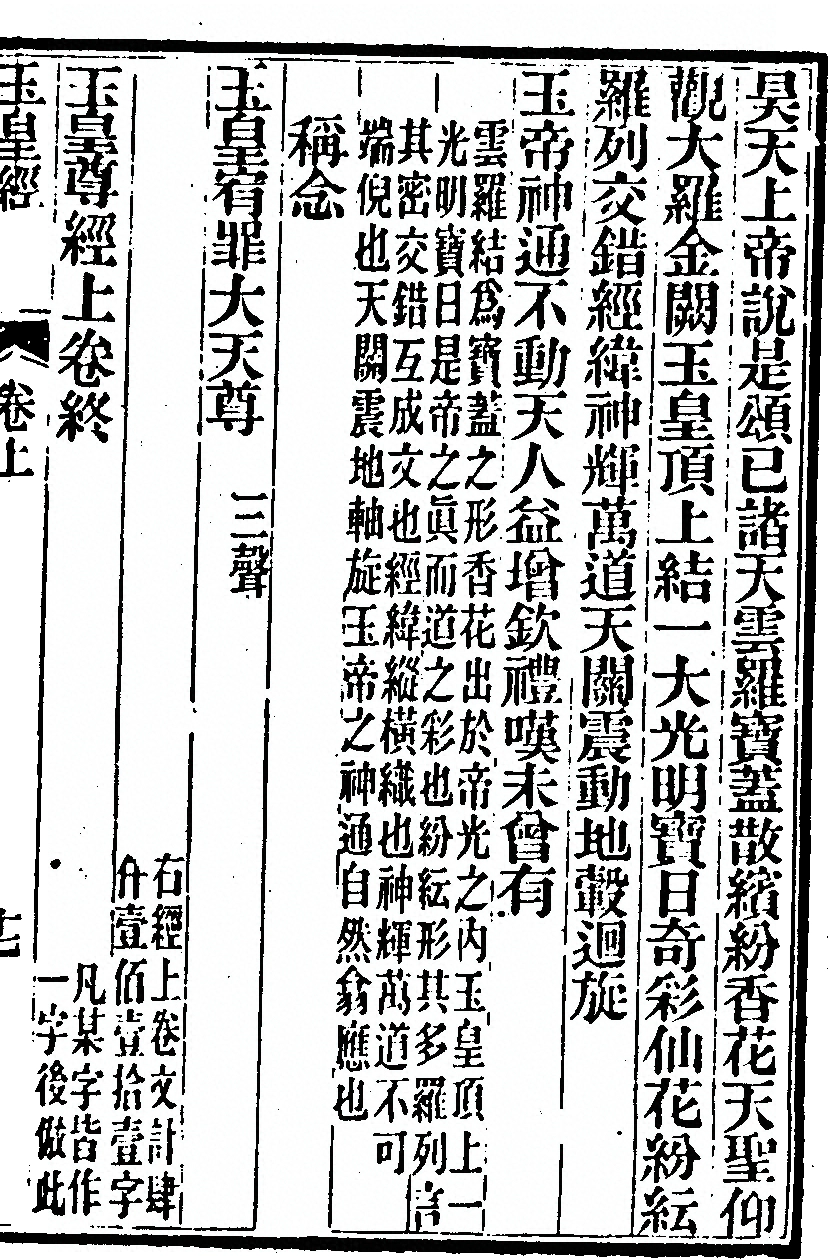 昊天上帝說是頌已諸天雲羅寶蓋散繽紛香花天聖仰
觀大羅金闕玉皇頂上結一大光明寶日奇彩仙花紛紜
羅列交錯經緯神輝萬道天關震動地轂迴旋
玉帝神通不動天人益增欽禮嘆未曾有
雲羅結爲寶蓋之形香花出於帝光之內玉皇頂上一
光明寶日是帝之眞而道之彩也紛紜形其多羅列言
其密交錯互成文也經緯縱橫織也神輝萬道不可
端倪也天關震地軸旋玉帝之神通自然翕應也
稱念
玉皇宥罪大天尊 三聲
右經上卷文計肆
仟壹佰壹拾壹字
凡某字皆作
一字後倣此
玉皇尊經上卷終
玉皇經 卷上